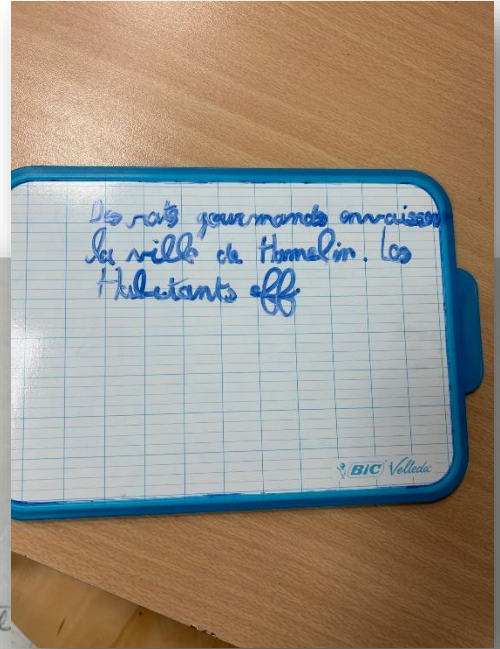 Des rats gourmands envaisse
la ville de Hamelin. Les
Habitants eff
BIC Velleda